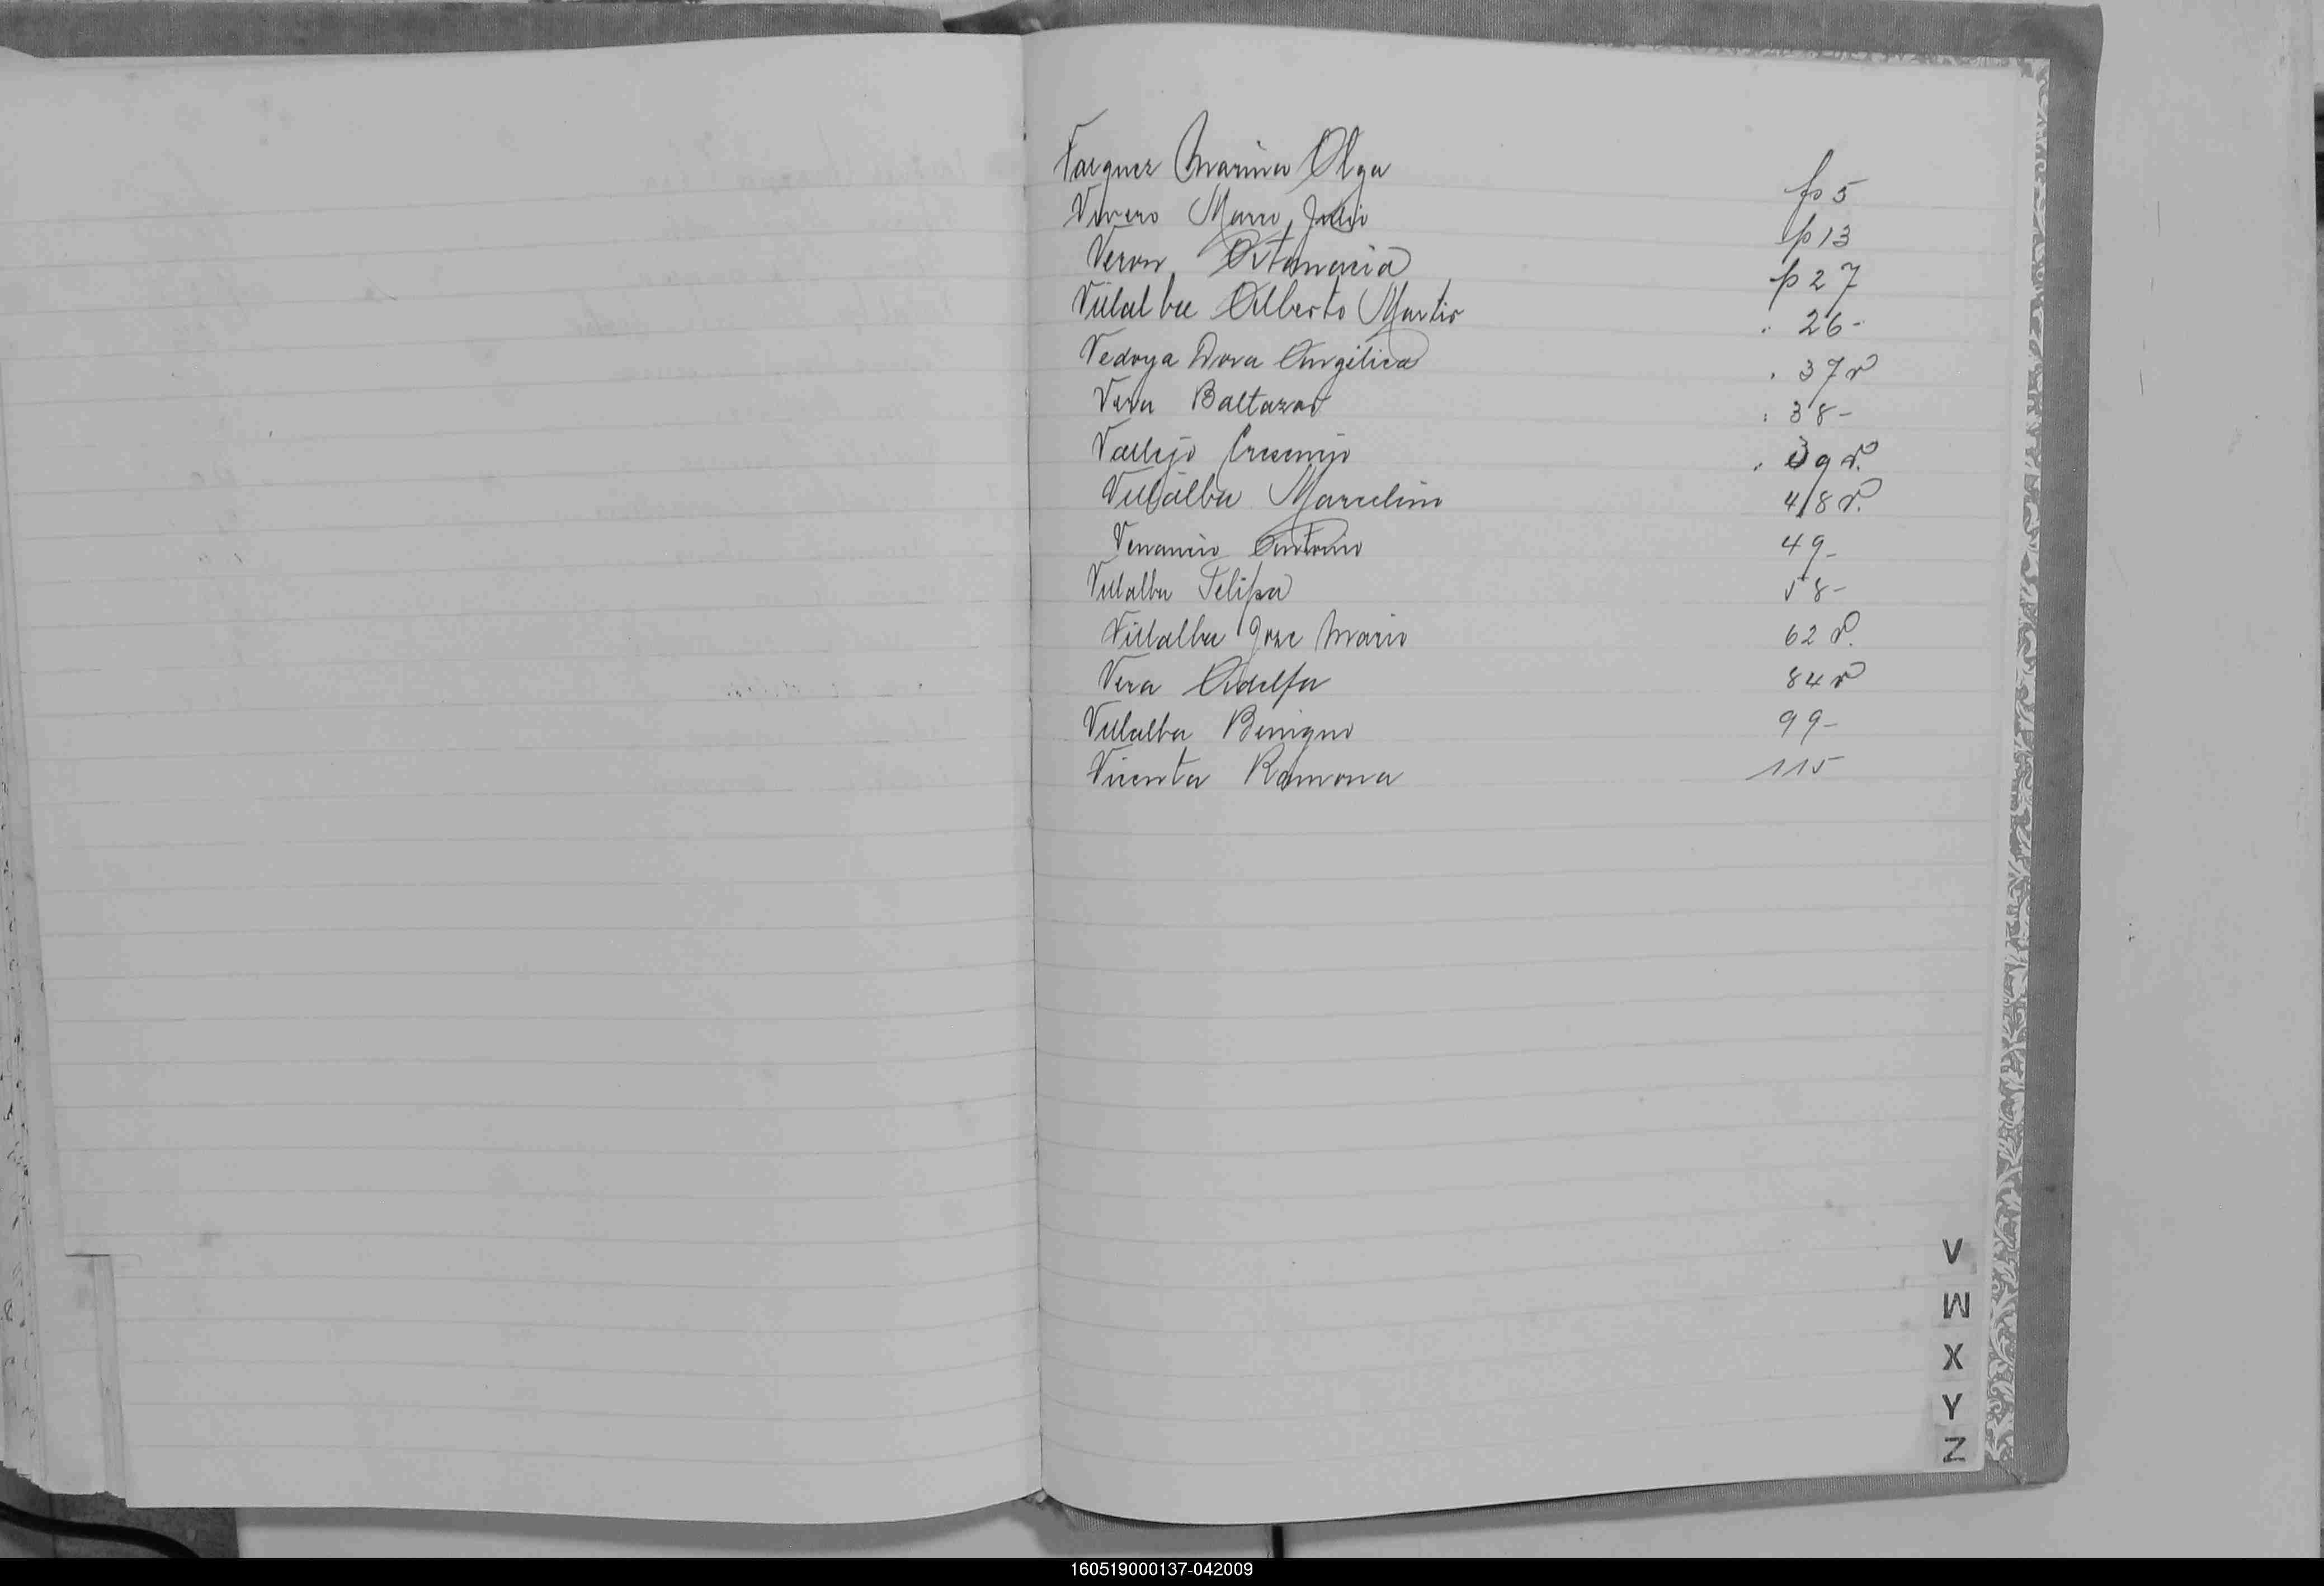 Vasquez Marina Olga fo 5
Vivero Mario Julio p 13
Veron Atanacia p 27
Villalba Alberto Martir . 26-
Vedoya Dora Angélica . 37 v
Vera Baltazar : 38-
Vallejo Cresencio . 39 v.
Villalba Marcelino 48 v.
Venancio Antonio 49-
Villalba Felipa 58-
Villalba Jose Mario 62 v.
Vera Adelfa 84 v
Villalba Benigno 99-
Vicenta Ramona 115
V
W
X
Y
Z
160519000137-042009